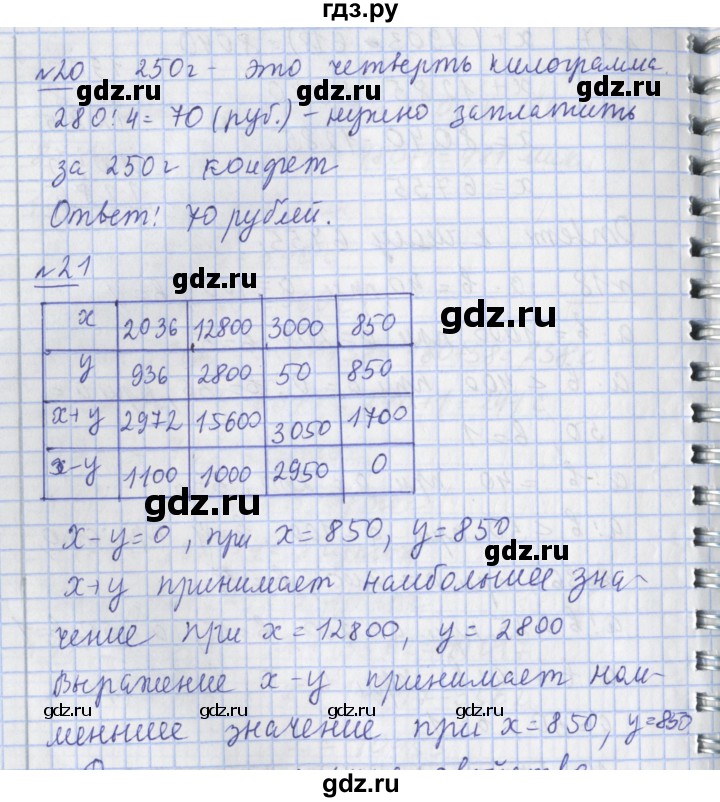 гдз.ру
№20 250г - это четверть килограмма.
gdz.ru gdz.ru
280:4=70 (руб.) - нужно заплатить
за 250г конфет
Ответ: 70 рублей.
№21
gdz.ru
x 2036 12800 3000 850
gdz.ru
y 936 2800 50 850
x+y 2972 15600 3050 1700
x-y 1100 1000 2950 0
gdz.ru
x-y=0, при x=850, y=850
gdz.ru
x+y принимает наибольшее зна-
чение при x=12800, y=2800
Выражение x-y принимает наи-
gdz.ru gdz.ru gdz.ru
меньшее значение при x=850, y=850
gdz.ru